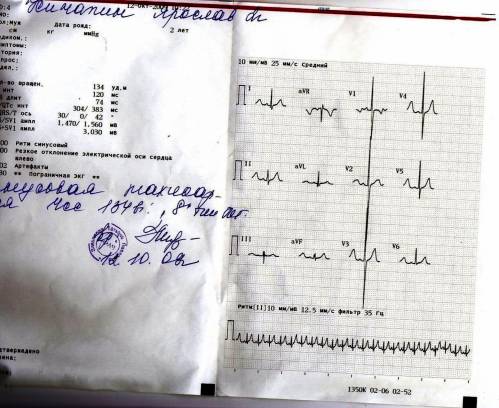 12-окт-
ол:Муж дата рожд:
см кг ммHg 2 лет
л-во вращен. 134 уд.м
инт 120 мс
длит 74 мс
/QTc инт 304/ 383 мс
QRS/T ось 30/ 0/ 42 °
/SV1 ампл 1,470/ 1,560 мВ
+SV1 ампл 3,030 мВ
00 Ритм синусовый
00 Резкое отклонение электрической оси сердца
влево
02 Артефакты
30 ** Пограничная ЭКГ **
ЧСС 134
12.10.02
дтверждено
10 мм/мВ 25 мм/с Средний
I aVR V1 V4
II aVL V2 V5
III aVF V3 V6
Ритм[II]10 мм/мВ 12.5 мм/с фильтр 35 Гц
1350K 02-06 02-52